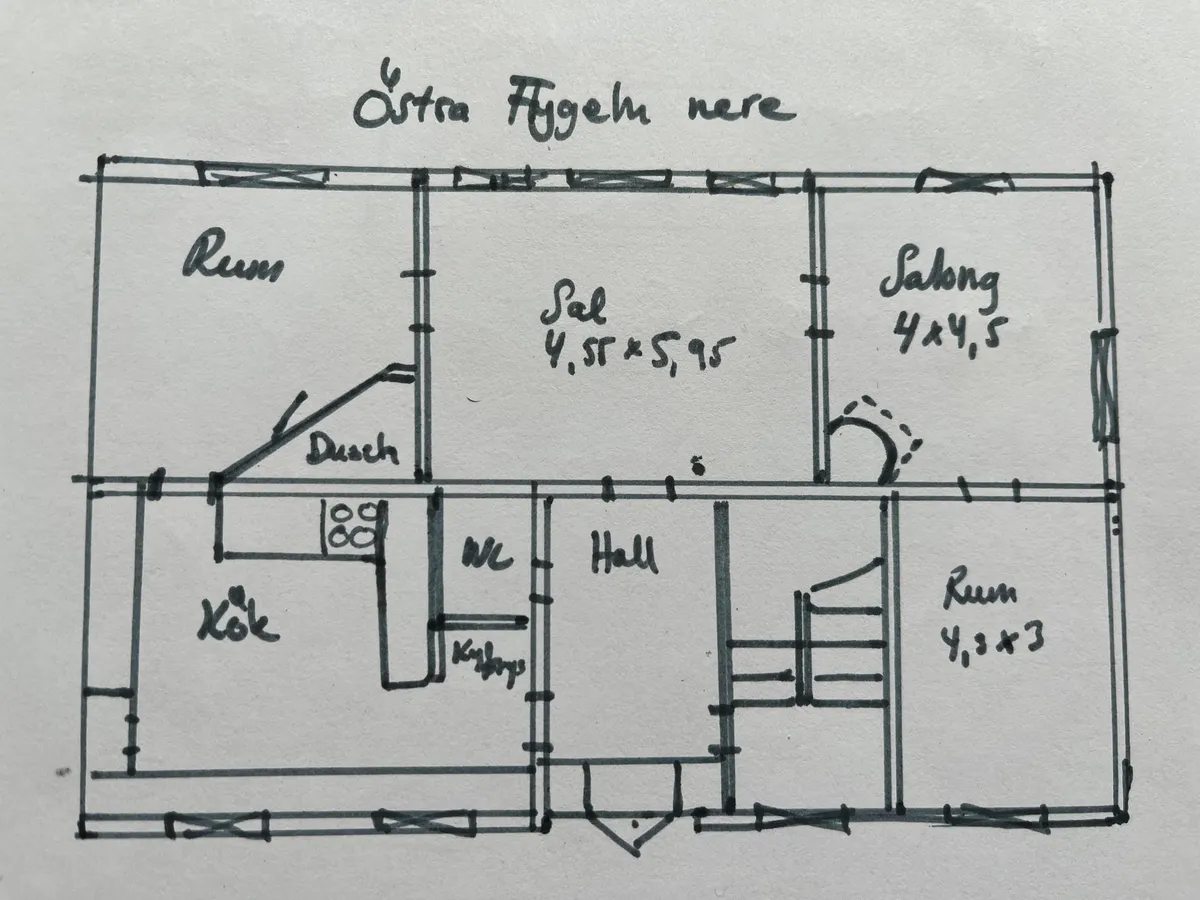 Östra Flygeln nere
Rum
Sal
4,55 x 5,95
Salong
4 x 4,5
Dusch
Kök
WC
Kyl frys
Hall
Rum
4,3 x 3